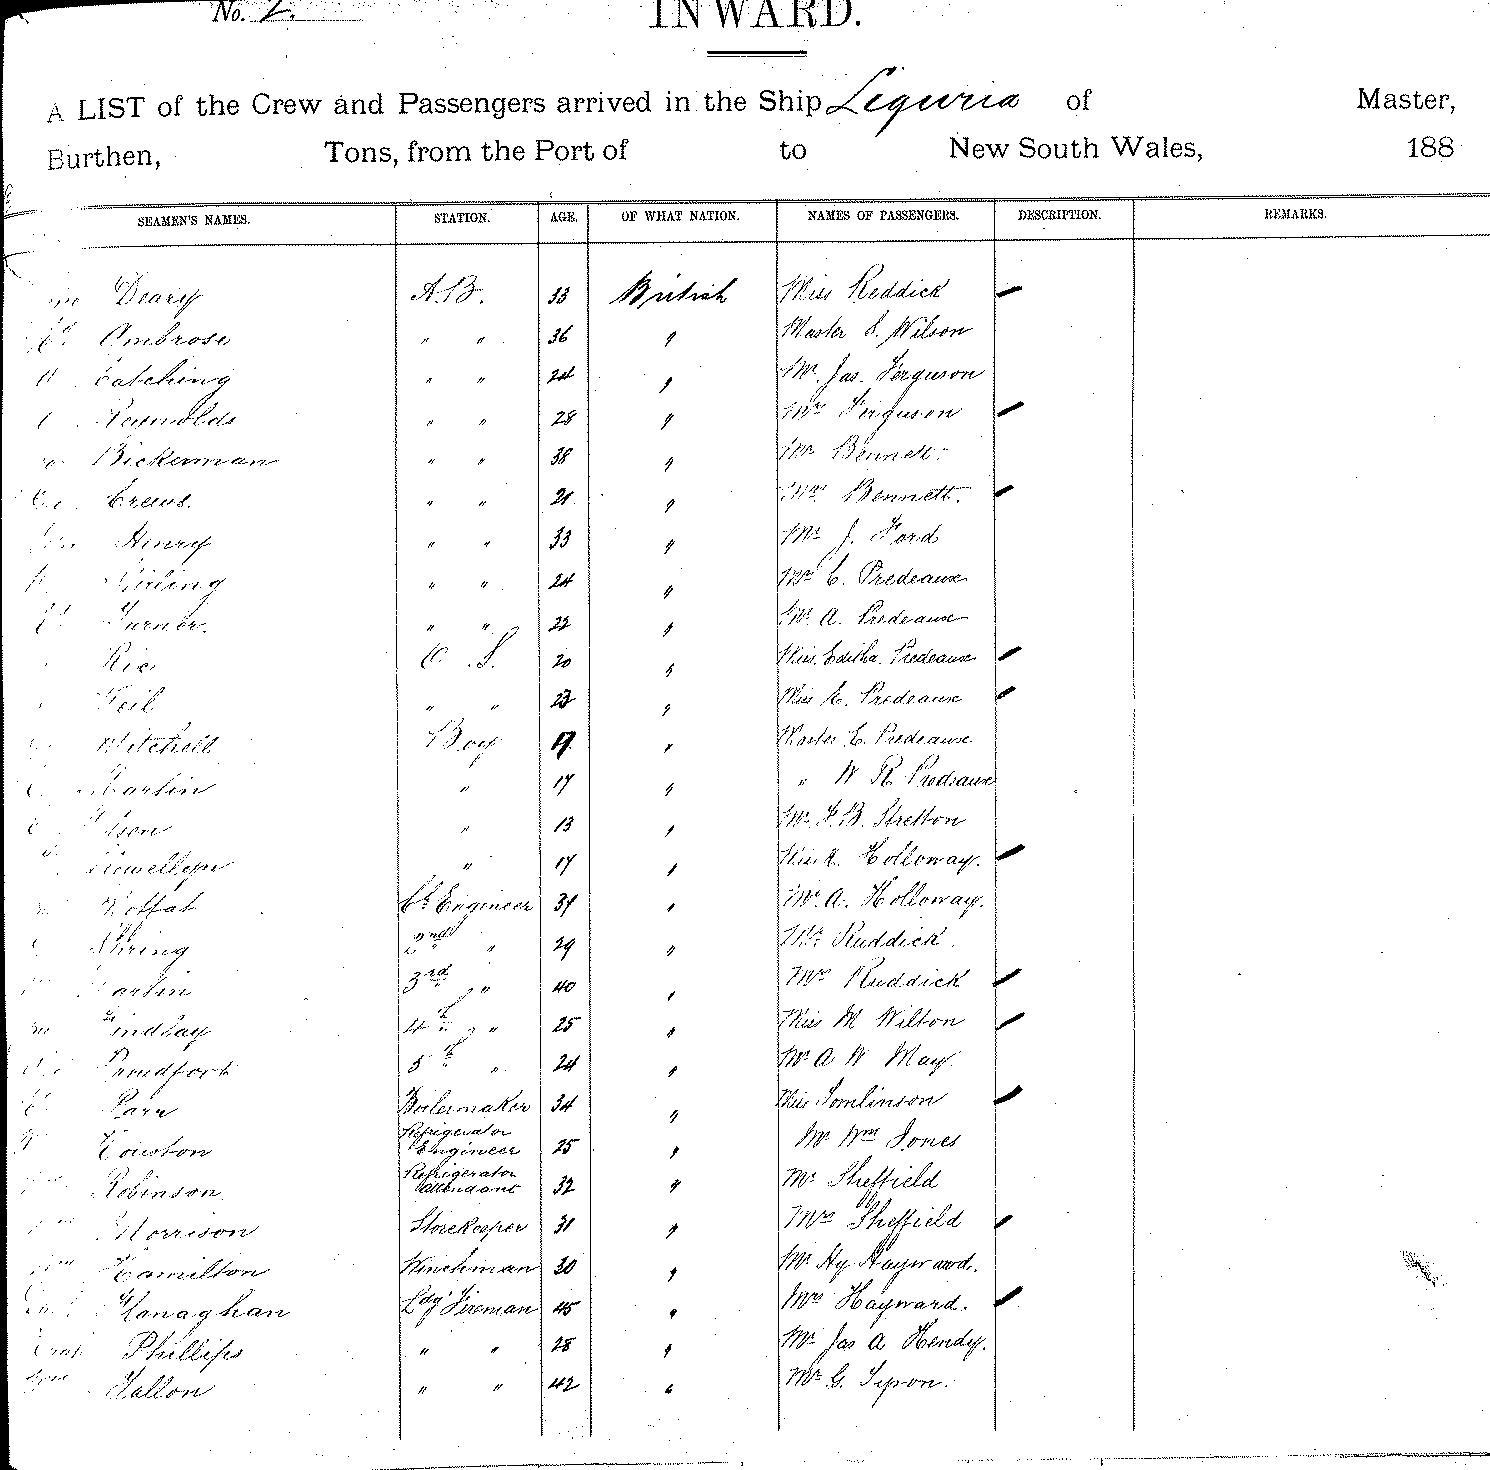 No. 2.
INWARD.
A LIST of the Crew and Passengers arrived in the Ship Liguria of Master,
Burthen, Tons, from the Port of to New South Wales, 188
SEAMEN'S NAMES. STATION. AGE. OF WHAT NATION. NAMES OF PASSENGERS. DESCRIPTION. REMARKS.
Deary A.B. 33 British Miss Reddick
Ambrose " " 36 " Master S. Wilson
Catching " " 24 " Mr. Jas. Ferguson
Reynolds " " 28 " Mrs Ferguson
Bickerman " " 38 " Mr Bennett.
Crews. " " 21 " Mrs Bennett.
Henry " " 33 " Mr J. Ford
" " 24 " Mr C. Predeaux
Turner. " " 22 " Mr. A. Predeaux
O.S. 20 " Miss Editha. Predeaux
" " 23 " Miss E. Predeaux
Mitchell Boy 19 " Master E. Predeaux
Martin " 17 " " W R Predeaux
" 13 " Mr. F. B. Stretton
Llewellyn " 17 " Miss Holloway.
Moffat Ch Engineer 39 " Mr. A. Holloway.
2nd " 29 " Mr Ruddick
Martin 3rd " 40 " Mrs Ruddick
Lindsay 4th " 25 " Miss M Wilton
5th " 24 " Mr A W May
Parr Boilermaker 34 " Miss Tomlinson
Houston Refrigerator Engineer 25 " Mr Wm Jones
Robinson Refrigerator attendant 32 " Mr Sheffield
Morrison Storekeeper 31 " Mrs Sheffield
Hamilton Winchman 30 " Mr Hy Hayward.
Monaghan Ldg Fireman 45 " Mrs Hayward.
Phillips " " 28 " Mr Jas A Hendy.
Fallon " " 42 " Mr G. Tyson.